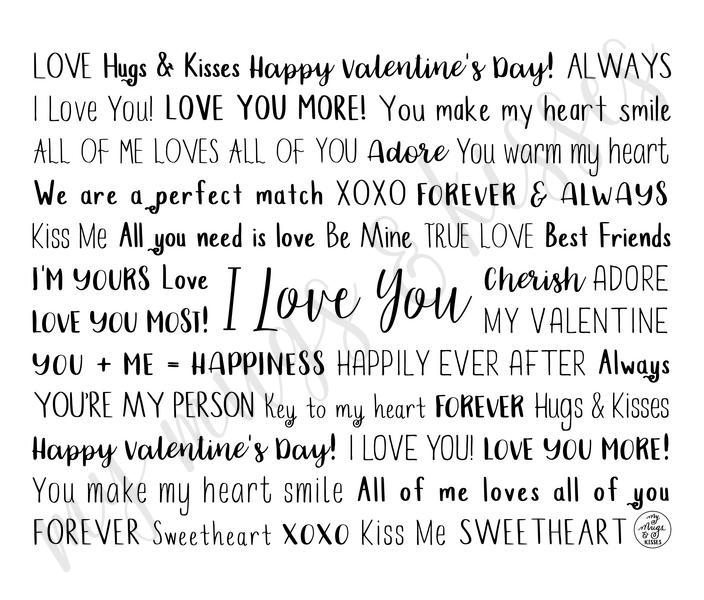 LOVE Hugs & Kisses Happy Valentine's Day! ALWAYS
I Love You! LOVE YOU MORE! You make my heart smile
ALL OF ME LOVES ALL OF YOU Adore You warm my heart
We are a perfect match XOXO FOREVER & ALWAYS
Kiss Me All you need is love Be Mine TRUE LOVE Best Friends
I'M YOURS Love
LOVE YOU MOST!
I Love You
Cherish ADORE
MY VALENTINE
YOU + ME = HAPPINESS HAPPILY EVER AFTER Always
YOU'RE MY PERSON Key to my heart FOREVER Hugs & Kisses
Happy Valentine's Day! I LOVE YOU! LOVE YOU MORE!
You make my heart smile All of me loves all of you
FOREVER Sweetheart XOXO Kiss Me SWEETHEART
My
Mugs
&
KISSES
my mugs & kisses